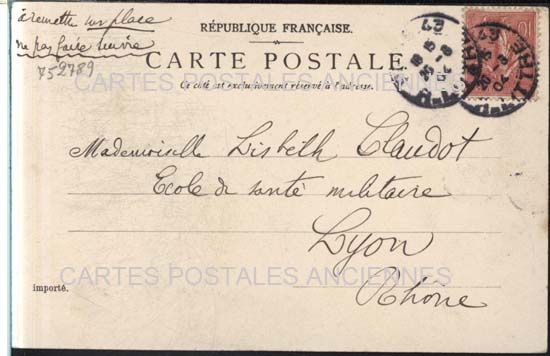 à remettre sur place
ne pas faire suivre
V52789
RÉPUBLIQUE FRANÇAISE.
CARTE POSTALE.
Ce côté est exclusivement réservé à l'adresse.
CARTES POSTALES ANCIENNES
Mademoiselle Lisbeth Claudot
Ecole de santé militaire
Lyon
CARTES POSTALES ANCIENNES
importé.
Rhône